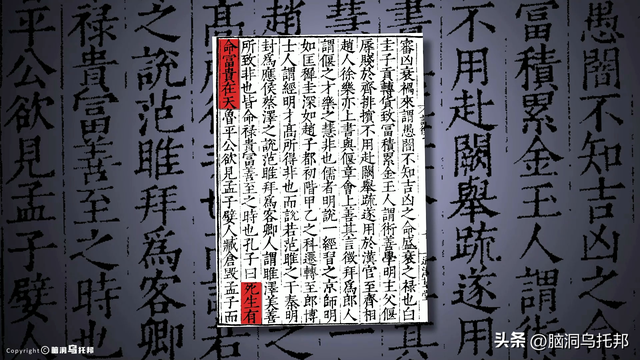 愚闇不知吉凶之命
富積累金玉人謂術
不用赴闕舉疏遂用
審凶衰禍來謂愚闇不知吉凶之命盛衰之祿也白
圭子貢轉貨致富積累金玉人謂術善學明主父偃
辱賤於齊排擯不用赴闕舉疏遂用於漢官至齊相
趙人徐樂亦上書與偃章會上善其言徵拜為郎人
謂偃之才樂之慧非也儒者明說一經習之京師明
如匡穉圭深如趙子都初階甲乙之科遷轉至郎博
士人謂經明才高所得非也而說若范雎之干秦明
封為應侯蔡澤之說范雎拜為客卿人謂雎澤美善
所致非也皆命祿貴富善至之時也孔子曰死生有
命富貴在天魯平公欲見孟子嬖人臧倉毀孟子而
之說范雎拜為客卿
祿貴富善至之時也
平公欲見孟子嬖人
Copyright © 脑洞乌托邦
头条 @脑洞乌托邦